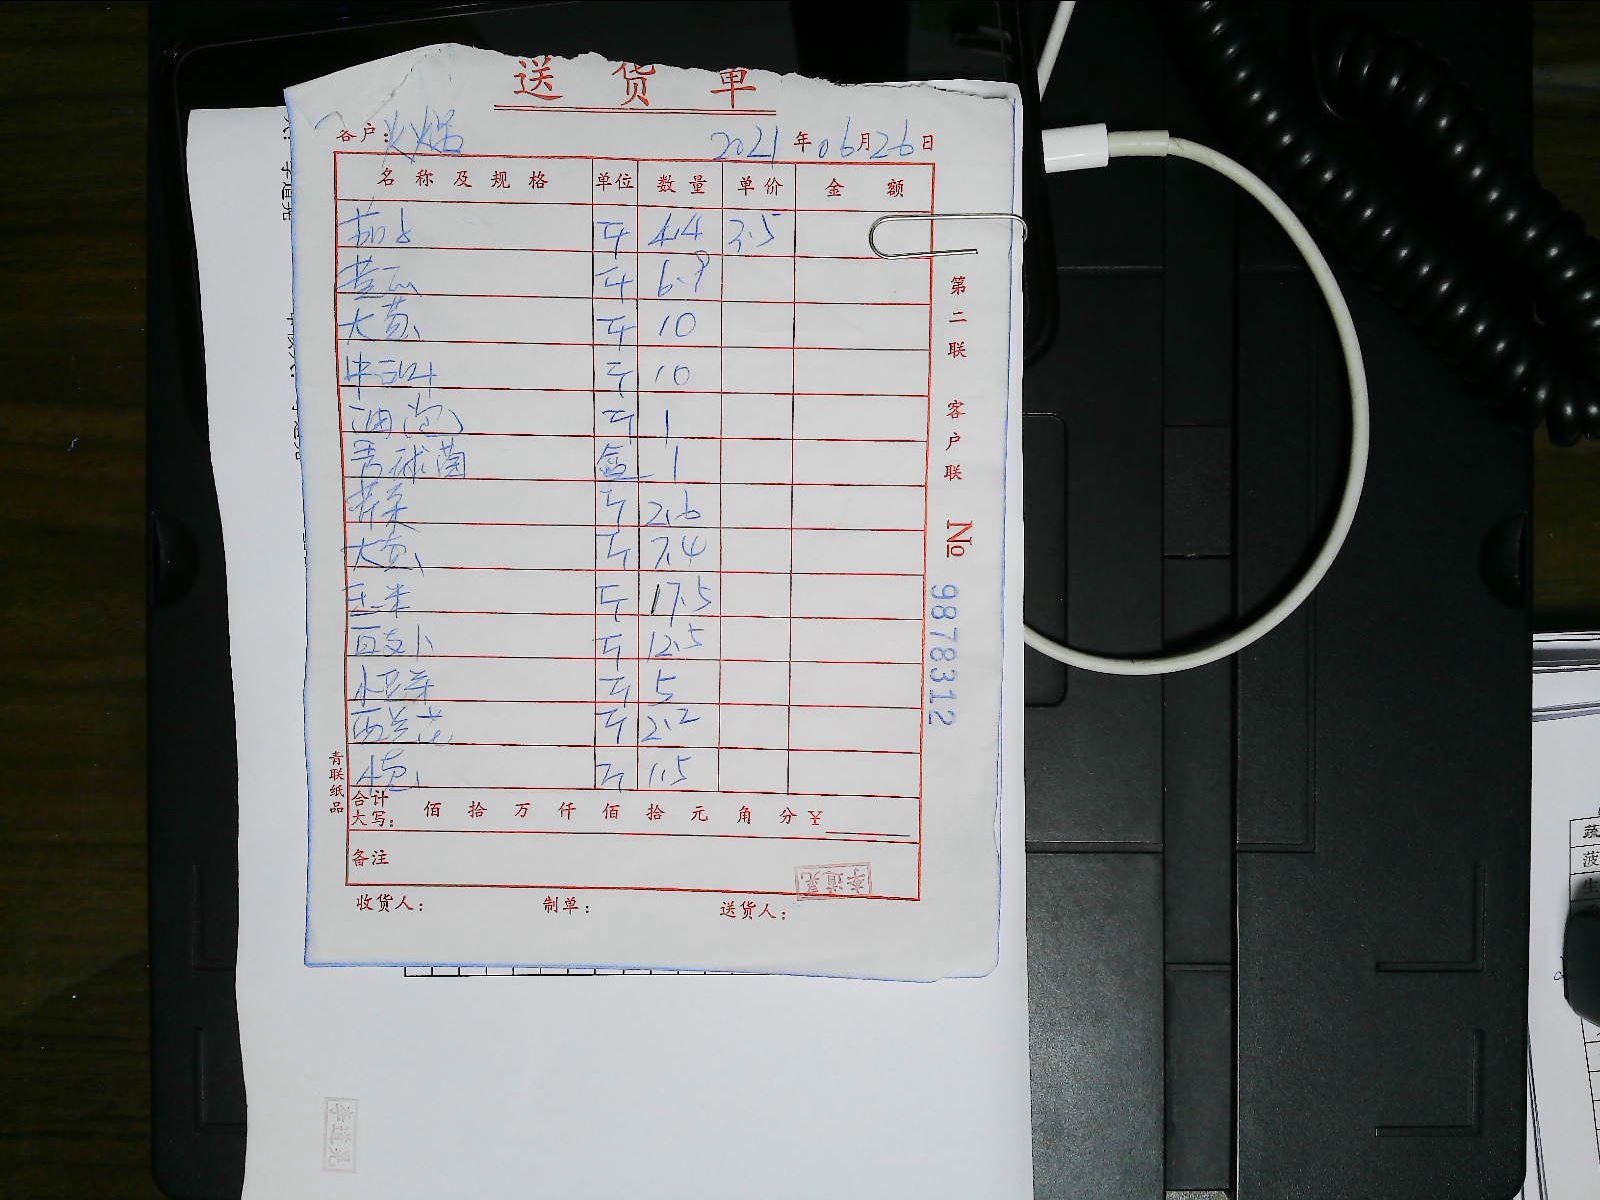 送 货 单
客户: 火锅
2021 年 06 月 26 日
名 称 及 规 格 单位 数 量 单 价 金 额
茄子 斤 4.4 3.5
斤 6.9
大葱 斤 10
斤 10
油 斤 1
秀球菌 盒 1
芹菜 斤 2.6
大 斤 7.4
玉米 斤 17.5
白玉卜 斤 12.5
斤 5
西兰花 斤 2.2
小葱 斤 1.5
合计
大写: 佰 拾 万 仟 佰 拾 元 角 分 ¥
备注
收货人: 制单: 送货人:
李道晃
第二联 客户联
№ 9878312
青联纸品
李道晃